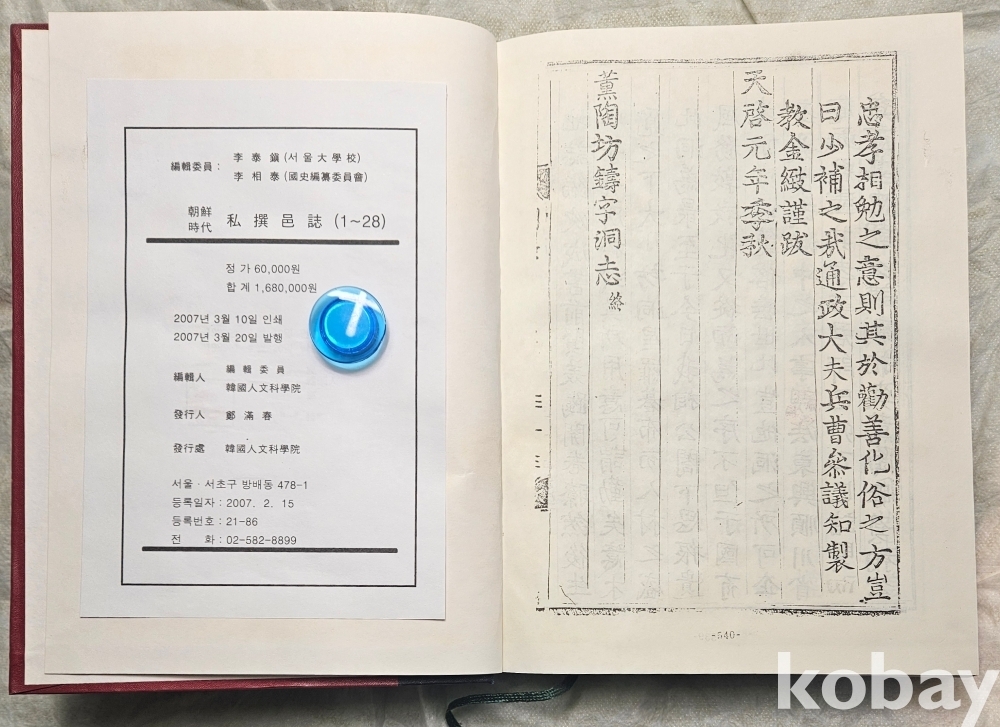 編輯委員 :
李 泰 鎭 (서 울 大 學 校)
李 相 泰 (國史編纂委員會)
朝鮮
時代
私 撰 邑 誌 (1~28)
정 가 60,000원
합 계 1,680,000원
2007년 3월 10일 인쇄
2007년 3월 20일 발행
編輯人
編 輯 委 員
韓國人文科學院
發行人 鄭 滿 春
發行處 韓國人文科學院
서울 · 서초구 방배동 478-1
등록일자 : 2007. 2. 15
등록번호 : 21-86
전 화 : 02-582-8899
忠孝相勉之意則其於勸善化俗之方豈
曰少補之哉通政大夫兵曹參議知製
敎金緻謹跋
天啓元年季秋
薰陶坊鑄字洞志 終
-540-
kobay